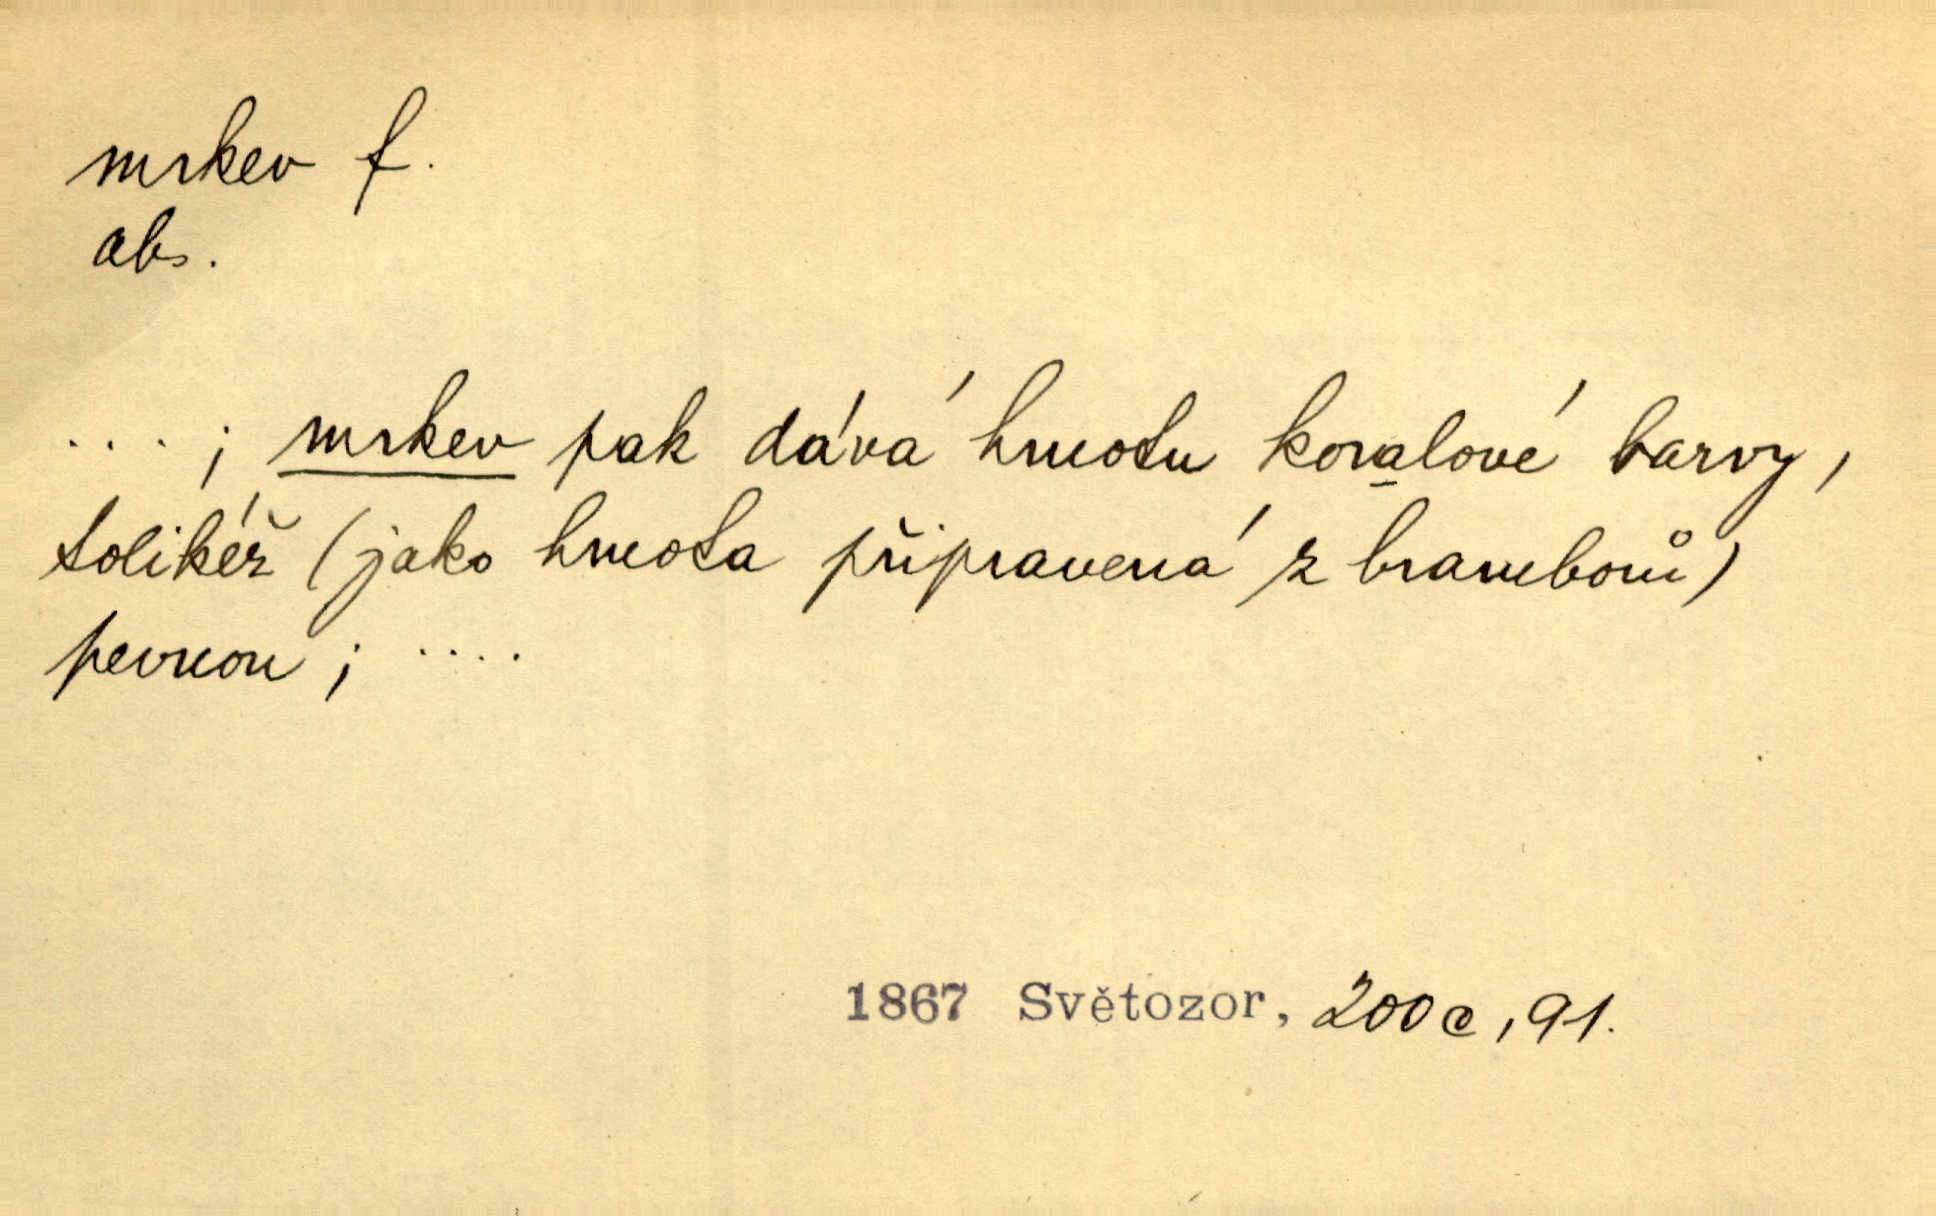 mrkev f.
abs.
....; mrkev pak dává hmotu koralové barvy,
tolikéž (jako hmota připravená z bramborů)
pevnou; ....
1867 Světozor, 200c, 91.